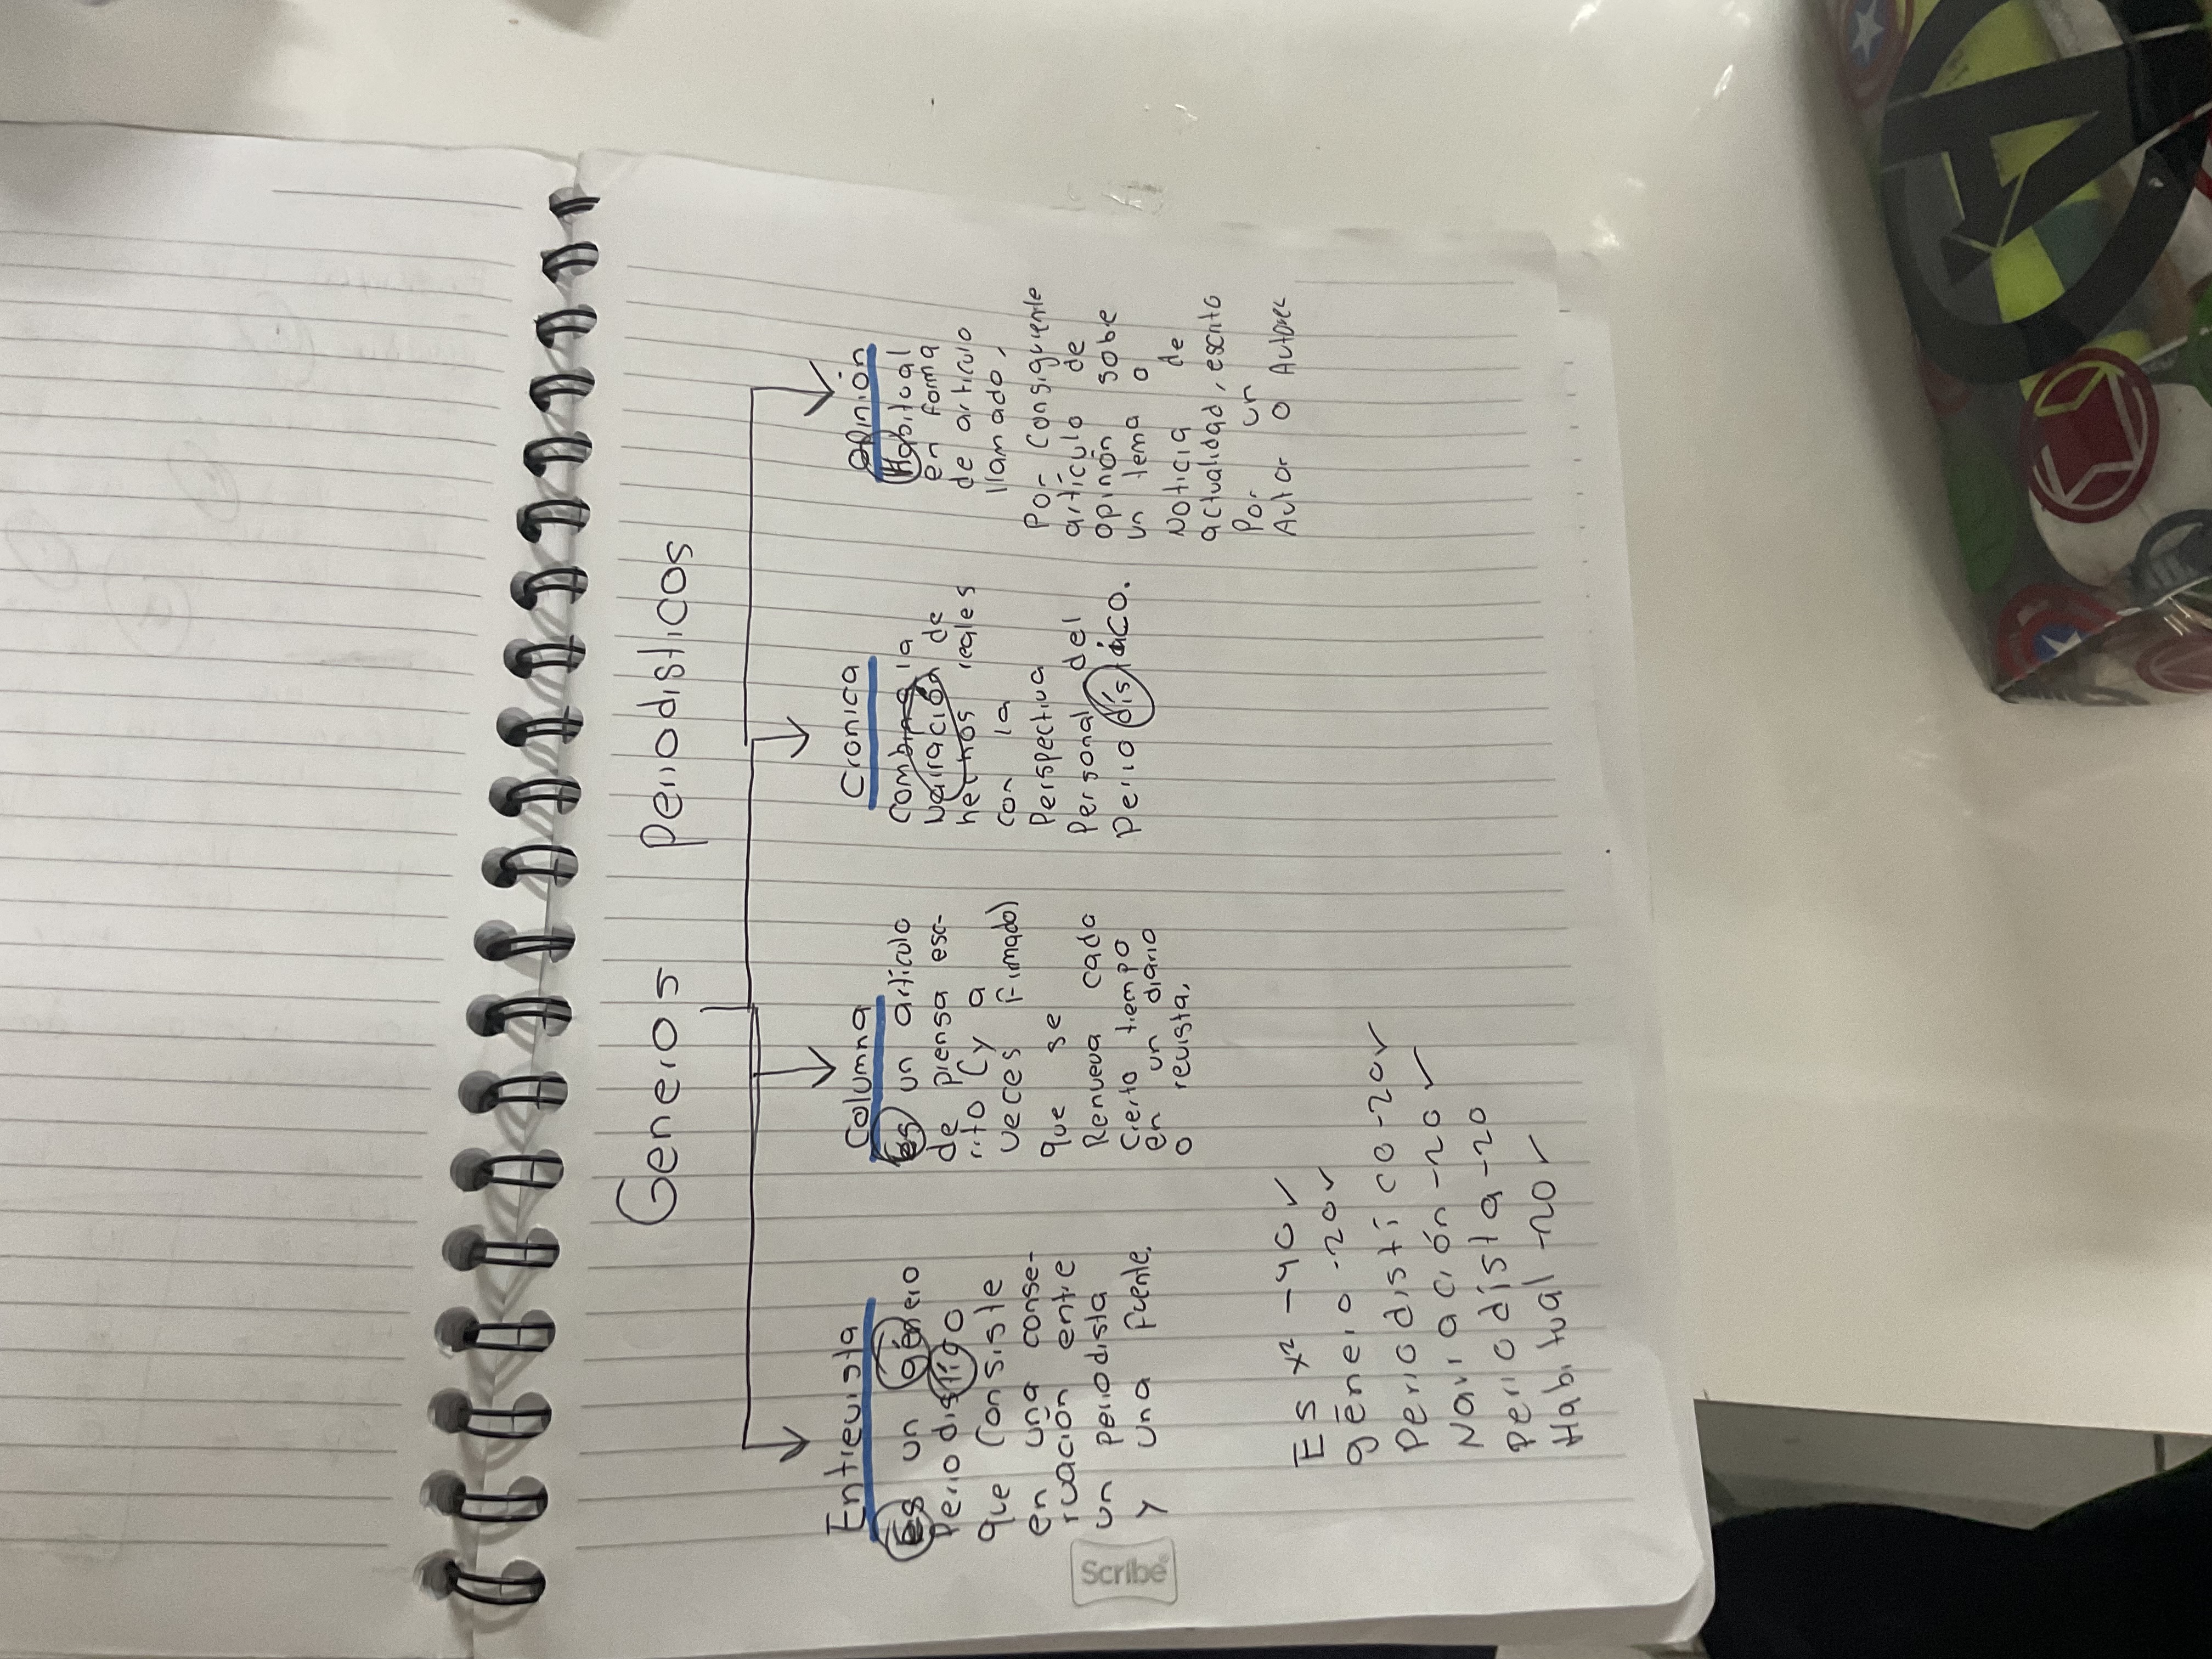 Generos periodisticos
Entrevista
Es un género
periodistico
que consiste
en una conse-
rvación entre
un periodista
y una fuente.
Columna
Es un artículo
de prensa esc-
rito (y a
veces firmado)
que se
Renueva cada
cierto tiempo
en un diario
o revista,
Cronica
Combina la
narración de
hechos reales
con la
Perspectiva
Personal del
Periodis
Opinión
Habitual
en forma
de artículo
llamado,
Por consiguiente
artículo de
opinión sobe
un tema o
Noticia de
actualidad, escrito
Por un
Autor o
Es x2 -40 ✓
género -20 ✓
Periodisti co -20 ✓
Narr ación -20 ✓
Periodísta -20
Habitual -20 ✓
Scribe